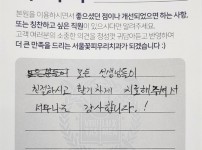 본원을 이용하시면서 좋으셨던 점이나 개선되었으면 하는 사항,
또는 칭찬하고 싶은 직원이 있으시다면 알려주세요.
고객 여러분의 소중한 의견을 정성껏 귀담아듣고 반영하여
더 큰 만족을 드리는 서울꽃피우리치과가 되겠습니다 :)
모든 선생님들이
친절하시고 환하게 치료해주셔서
너무나도 감사합니다!